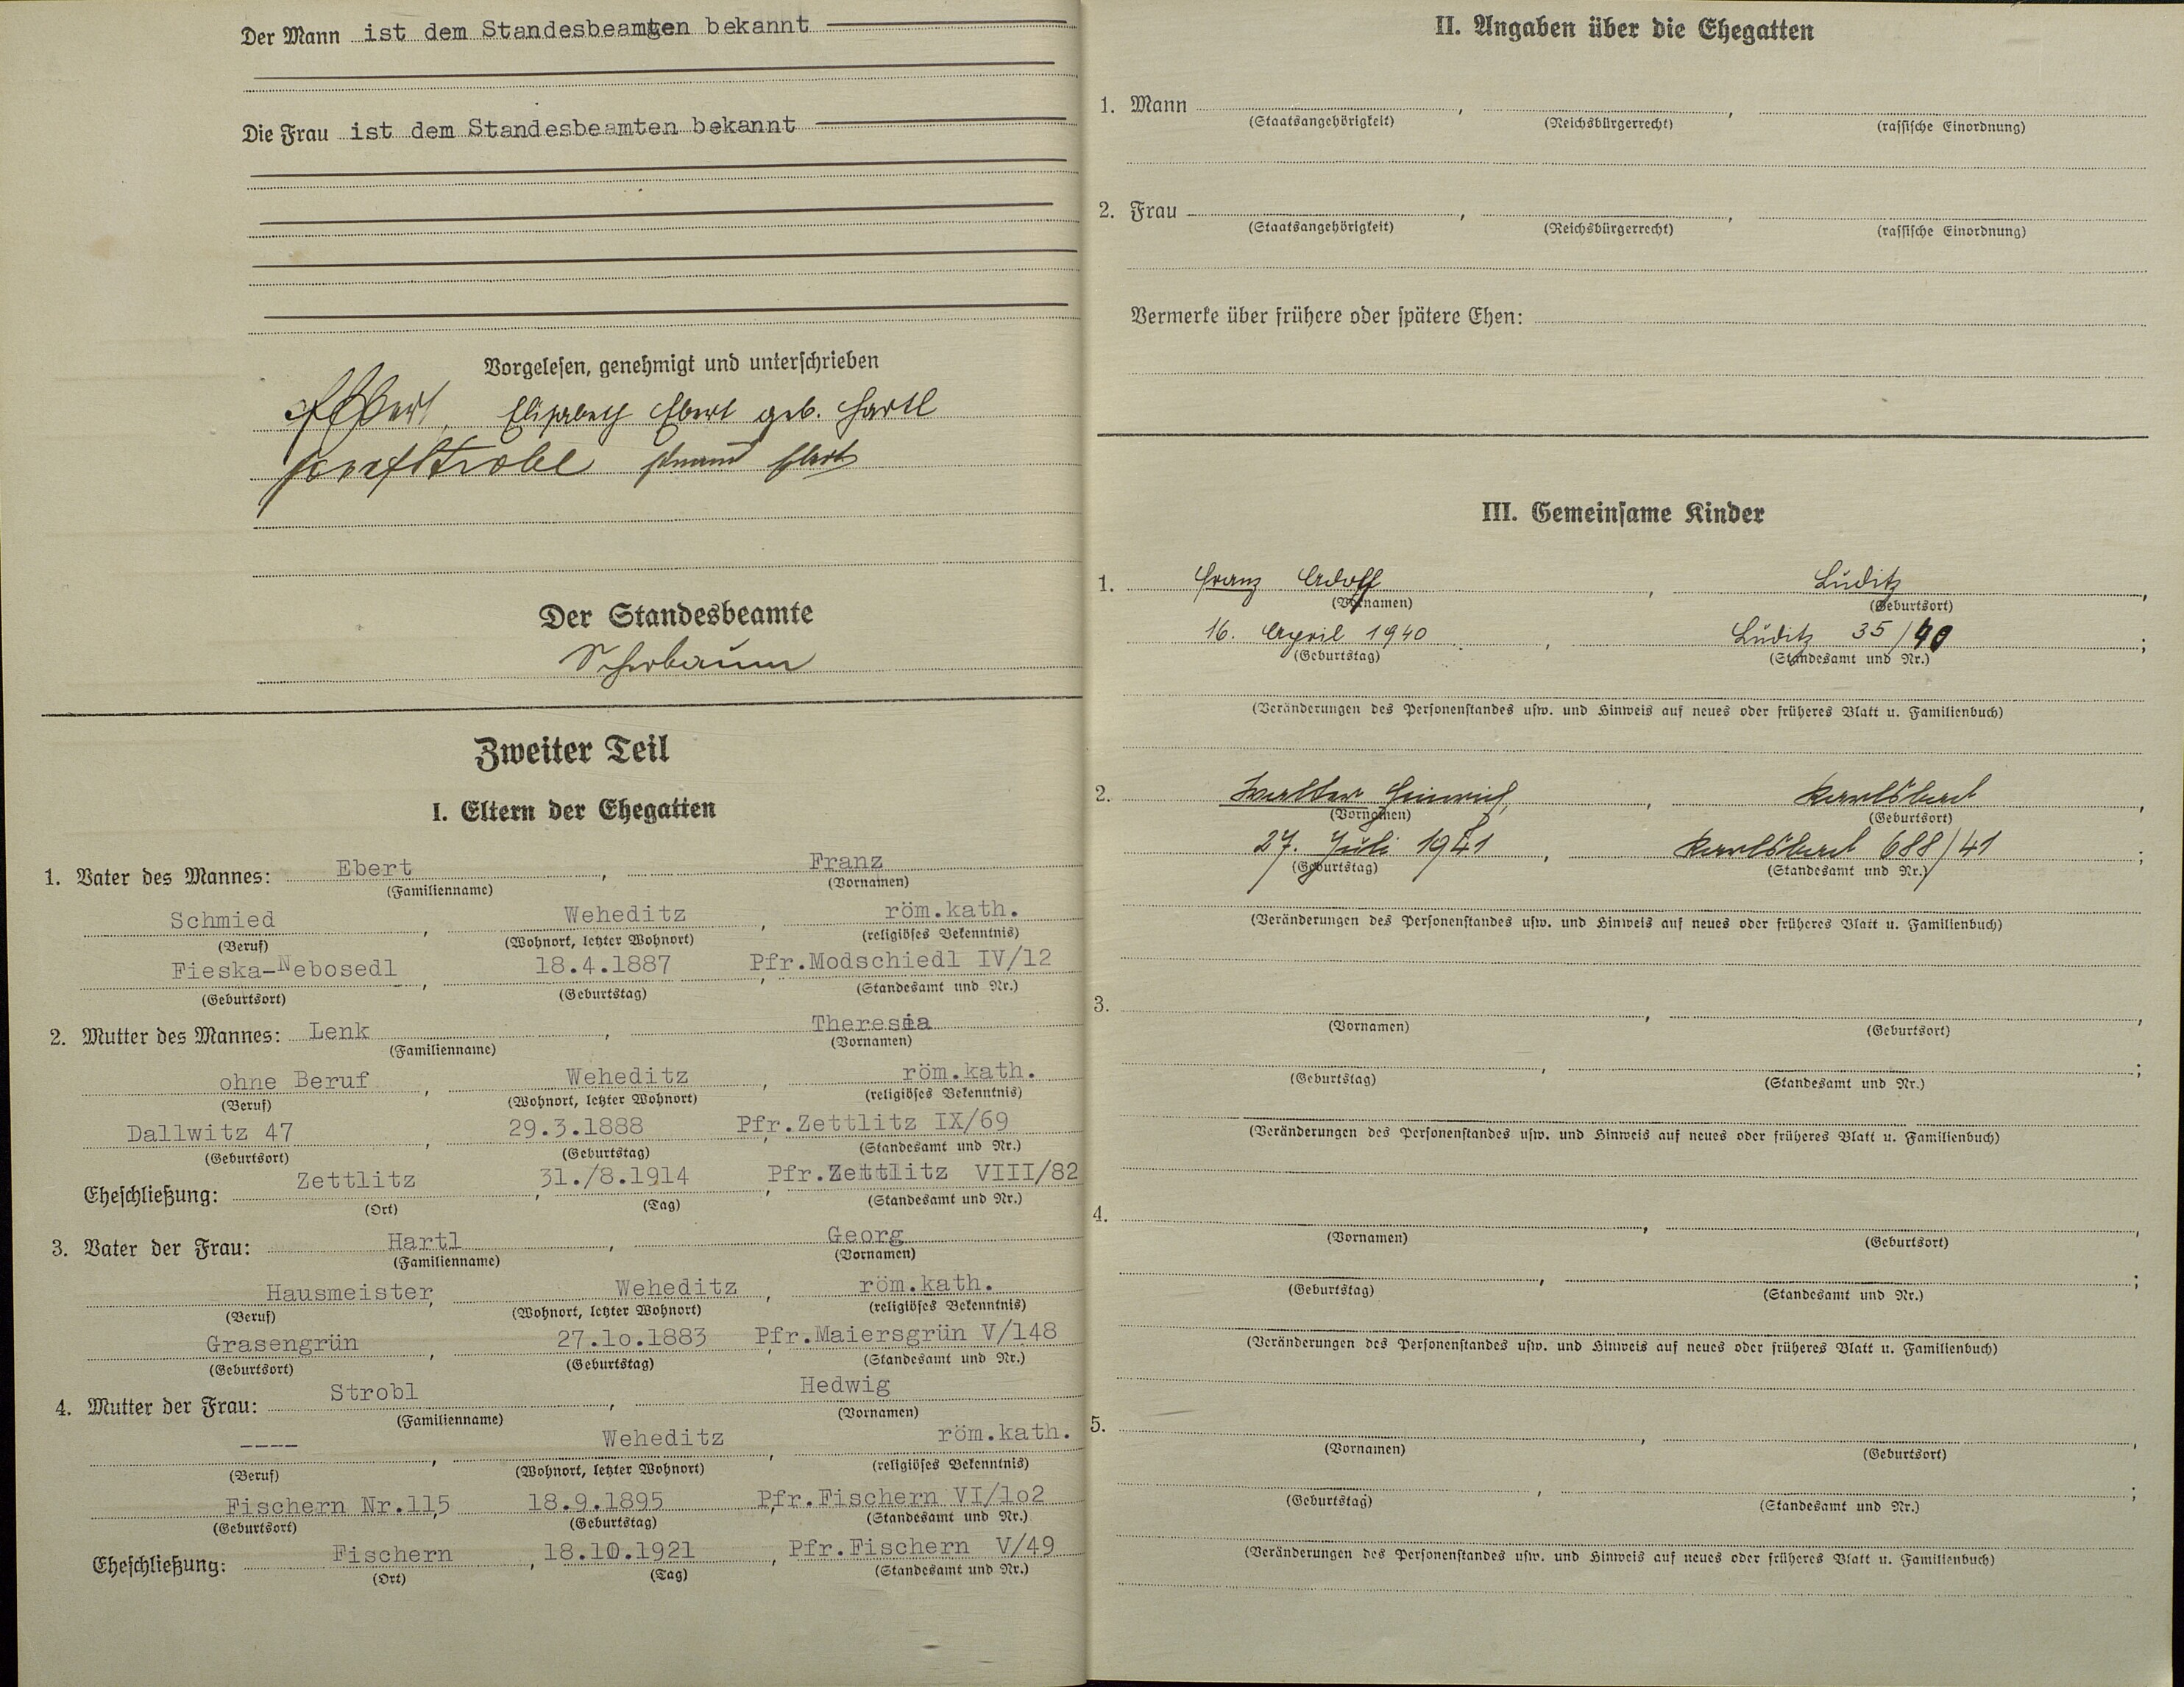 Der Mann ist dem Standesbeamten bekannt
Die Frau ist dem Standesbeamten bekannt
Vorgelesen, genehmigt und unterschrieben
Ebert, Elisabeth Ebert geb. Hartl
Josef Strobl
Der Standesbeamte
Scherbaum
Zweiter Teil
I. Eltern der Ehegatten
1. Vater des Mannes: Ebert, Franz
(Familienname) (Vornamen)
Schmied, Weheditz, röm.kath.
(Beruf) (Wohnort, letzter Wohnort) (religiöses Bekenntnis)
Fieska-Nebosedl, 18.4.1887, Pfr.Modschiedl IV/12
(Geburtsort) (Geburtstag) (Standesamt und Nr.)
2. Mutter des Mannes: Lenk, Theresia
(Familienname) (Vornamen)
ohne Beruf, Weheditz, röm.kath.
(Beruf) (Wohnort, letzter Wohnort) (religiöses Bekenntnis)
Dallwitz 47, 29.3.1888, Pfr.Zettlitz IX/69
(Geburtsort) (Geburtstag) (Standesamt und Nr.)
Eheschließung: Zettlitz, 31./8.1914, Pfr.Zettlitz VIII/82
(Ort) (Tag) (Standesamt und Nr.)
3. Vater der Frau: Hartl, Georg
(Familienname) (Vornamen)
Hausmeister, Weheditz, röm.kath.
(Beruf) (Wohnort, letzter Wohnort) (religiöses Bekenntnis)
Grasengrün, 27.1o.1883, Pfr.Maiersgrün V/148
(Geburtsort) (Geburtstag) (Standesamt und Nr.)
4. Mutter der Frau: Strobl, Hedwig
(Familienname) (Vornamen)
----, Weheditz, röm.kath.
(Beruf) (Wohnort, letzter Wohnort) (religiöses Bekenntnis)
Fischern Nr.115, 18.9.1895, Pfr.Fischern VI/1o2
(Geburtsort) (Geburtstag) (Standesamt und Nr.)
Eheschließung: Fischern, 18.10.1921, Pfr.Fischern V/49
(Ort) (Tag) (Standesamt und Nr.)
II. Angaben über die Ehegatten
1. Mann , ,
(Staatsangehörigkeit) (Reichsbürgerrecht) (rassische Einordnung)
2. Frau , ,
(Staatsangehörigkeit) (Reichsbürgerrecht) (rassische Einordnung)
Vermerke über frühere oder spätere Ehen:
III. Gemeinsame Kinder
1. Franz Adolf, Luditz,
(Vornamen) (Geburtsort)
16. April 1940, Luditz 35/40;
(Geburtstag) (Standesamt und Nr.)
(Veränderungen des Personenstandes usw. und Hinweis auf neues oder früheres Blatt u. Familienbuch)
2. Walter Heinrich, Karlsbad,
(Vornamen) (Geburtsort)
27. Juli 1941, Karlsbad 688/41;
(Geburtstag) (Standesamt und Nr.)
(Veränderungen des Personenstandes usw. und Hinweis auf neues oder früheres Blatt u. Familienbuch)
3. , ,
(Vornamen) (Geburtsort)
, ;
(Geburtstag) (Standesamt und Nr.)
(Veränderungen des Personenstandes usw. und Hinweis auf neues oder früheres Blatt u. Familienbuch)
4. , ,
(Vornamen) (Geburtsort)
, ;
(Geburtstag) (Standesamt und Nr.)
(Veränderungen des Personenstandes usw. und Hinweis auf neues oder früheres Blatt u. Familienbuch)
5. , ,
(Vornamen) (Geburtsort)
, ;
(Geburtstag) (Standesamt und Nr.)
(Veränderungen des Personenstandes usw. und Hinweis auf neues oder früheres Blatt u. Familienbuch)